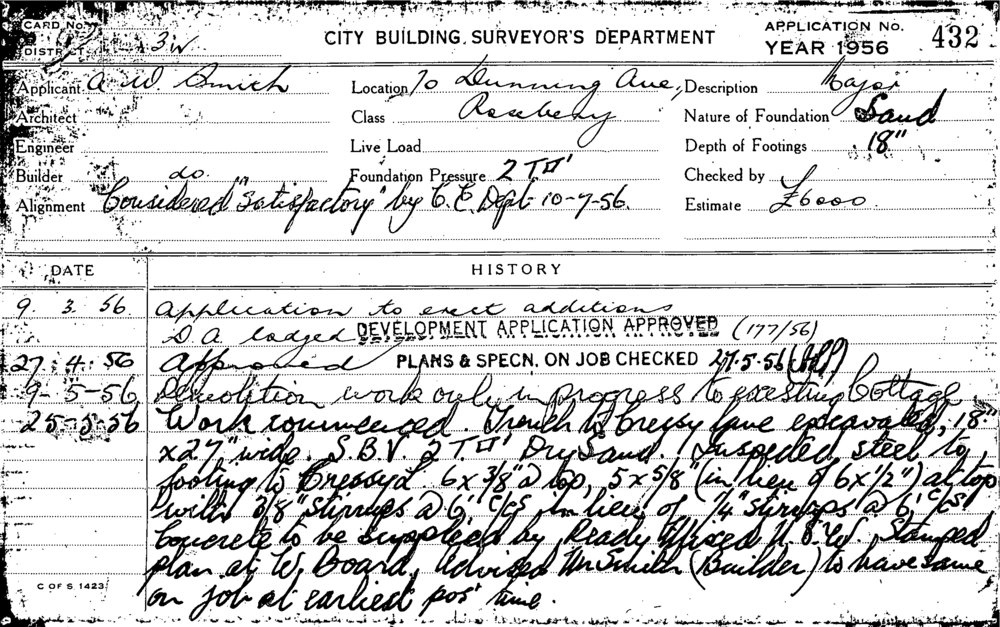 CARD No.
DISTRICT 3W
CITY BUILDING SURVEYOR'S DEPARTMENT
APPLICATION No. 432
YEAR 1956
Applicant A W. Smith Location 70 Dunning Ave, Description Major
Architect Class Rosebery Nature of Foundation Sand
Engineer Live Load Depth of Footings 18"
Builder do. Foundation Pressure 2 T□' Checked by
Alignment Considered "Satisfactory" by C.E. Dept 10-7-56. Estimate £6000
DATE HISTORY
9. 3. 56 Application to erect additions
D.A. lodged DEVELOPMENT APPLICATION APPROVED (177/56)
27. 4. 56 Approved PLANS & SPECN. ON JOB CHECKED 27-5-56
9-5-56 Demolition work only in progress to existing Cottage
25-5-56 Work commenced. Trench to Cressy Lane excavated, 18"
x 27" wide. S.B.V. 2 T□' Dry Sand. Inspected steel to
footing to Cressy L. 6 x 3/8" @ top, 5 x 5/8" (in lieu of 6 x 1/2") at top
with 3/8" stirrups @ 6" c/cs in lieu of 1/4" stirrups @ 6" c/cs.
Concrete to be supplied by Ready Mixed N.S.W. Stamped
plan at W. Board, Advised Mr Smith (Builder) to have same
on job at earliest pos' time.
C OF S. 1423